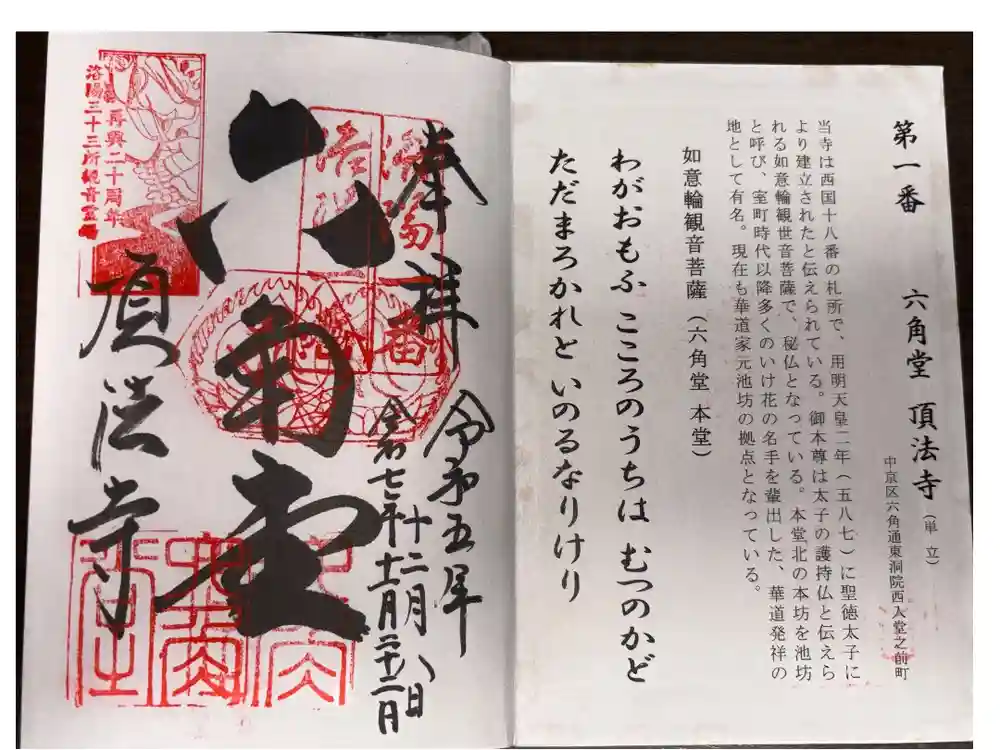 第一番 六角堂 頂法寺(単立)
中京区六角通東洞院西入堂之前町
当寺は西国十八番の札所で、用明天皇二年(五八七)に聖徳太子に
より建立されたと伝えられている。御本尊は太子の護持仏と伝えら
れる如意輪観世音菩薩で、秘仏となっている。本堂北の本坊を池坊
と呼び、室町時代以降多くのいけ花の名手を輩出した、華道発祥の
地として有名。現在も華道家元池坊の拠点となっている。
如意輪観音菩薩(六角堂 本堂)
わがおもふ こころのうちは むつのかど
ただまろかれと いのるなりけり
奉拝
令和五年
十二月八日
令和七年十二月二十二日
六角堂
頂法寺
再興二十周年
洛陽三十三所観音霊場